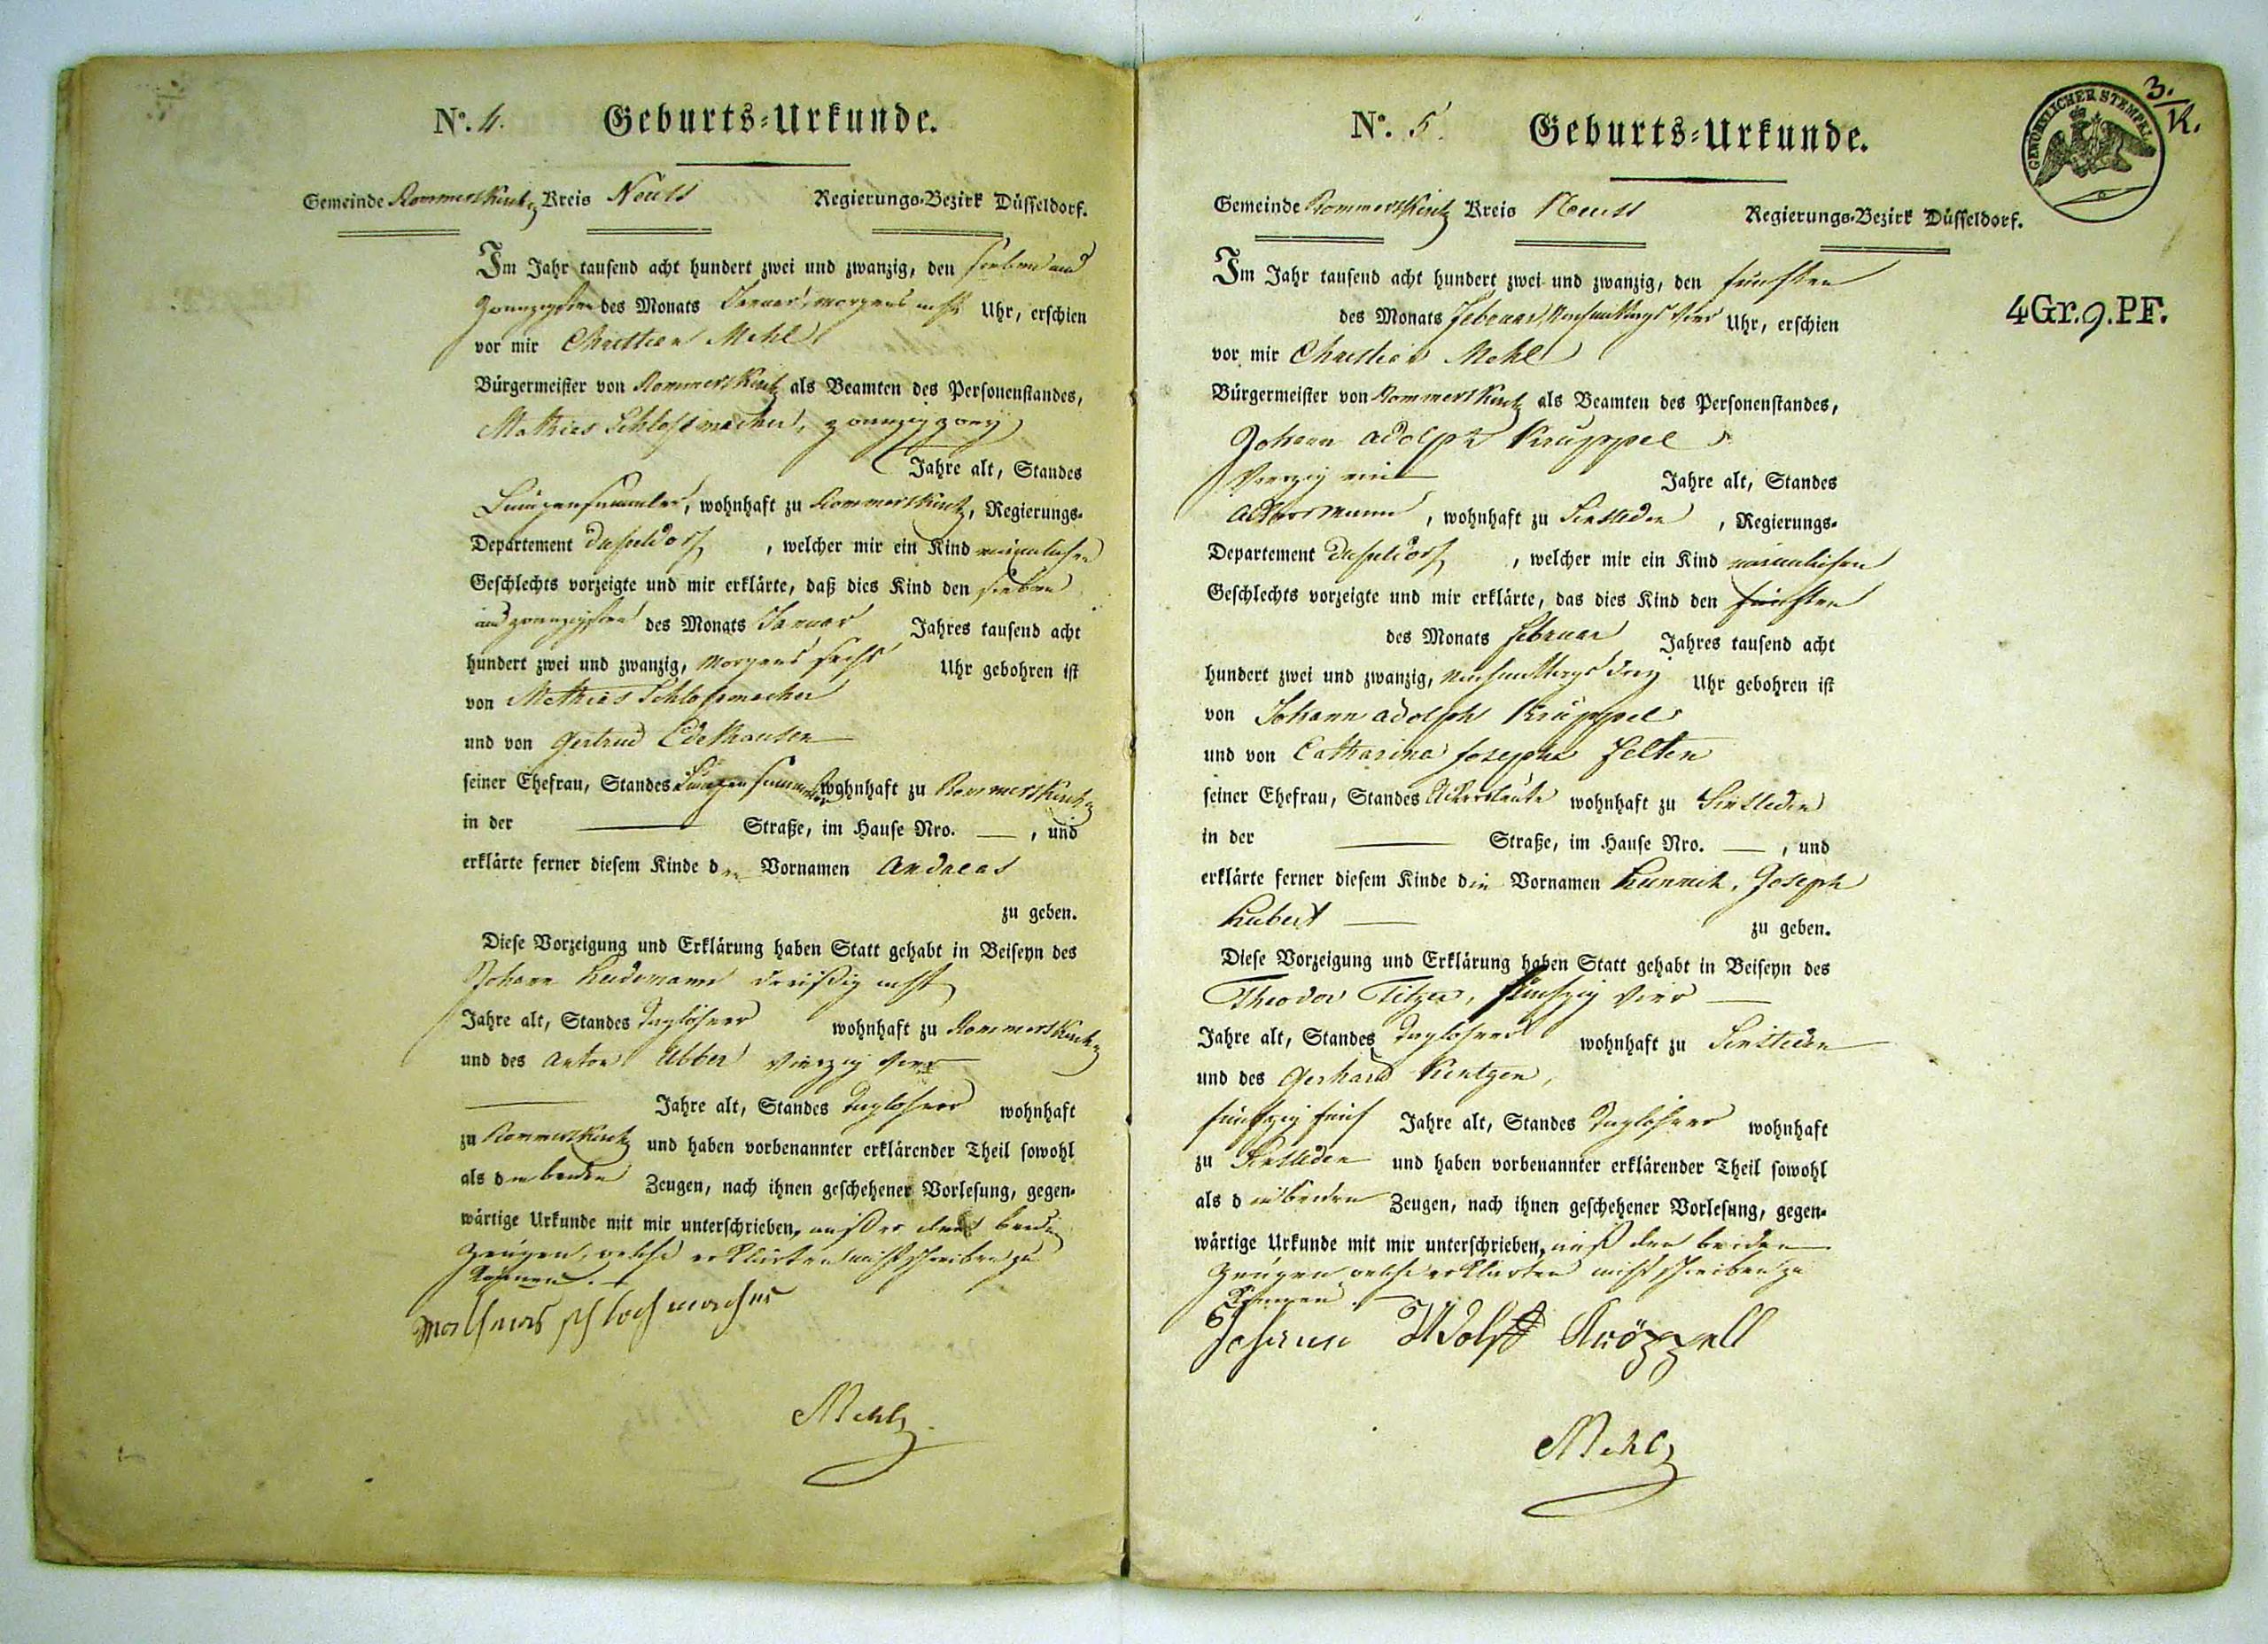 No. 4. Geburts-Urkunde.
Gemeinde Rommerskirch Kreis Neuss Regierungs-Bezirk Düsseldorf.
Im Jahr tausend acht hundert zwei und zwanzig, den sieben und
zwanzigsten des Monats Januar, morgens acht Uhr, erschien
vor mir Christian Mehl
Bürgermeister von Rommerskirch als Beamten des Personenstandes,
Mathias Schlossmacher, zwanzig zwey
Jahre alt, Standes
Lumpensammler, wohnhaft zu Rommerskirch, Regierungs-
Departement Dusseldorf, welcher mir ein Kind männlichen
Geschlechts vorzeigte und mir erklärte, daß dies Kind den sieben
und zwanzigsten des Monats Januar Jahres tausend acht
hundert zwei und zwanzig, morgens sechs Uhr gebohren ist
von Mathias Schlossmacher
und von Gertrud Edelhausen
seiner Ehefrau, Standes Lumpensammler wohnhaft zu Rommerskirch
in der — Straße, im Hause Nro. —, und
erklärte ferner diesem Kinde den Vornamen Andreas
zu geben.
Diese Vorzeigung und Erklärung haben Statt gehabt in Beiseyn des
Johann Heidemann dreißig acht
Jahre alt, Standes Taglöhner wohnhaft zu Rommerskirch
und des Anton Ubber vierzig vier
— Jahre alt, Standes Taglöhner wohnhaft
zu Rommerskirch und haben vorbenannter erklärender Theil sowohl
als die beiden Zeugen, nach ihnen geschehener Vorlesung, gegen-
wärtige Urkunde mit mir unterschrieben, außer den beiden
Zeugen, welche erklärten nicht schreiben zu
können.
Mathias schlosmacher
Mehl
No. 5. Geburts-Urkunde.
GEWÖHNLICHER STEMPEL
3.
R.
Gemeinde Rommerskirch Kreis Neuss Regierungs-Bezirk Düsseldorf.
4Gr.9.PF.
Im Jahr tausend acht hundert zwei und zwanzig, den fünften
des Monats Februar, Nachmittags vier Uhr, erschien
vor mir Christian Mehl
Bürgermeister von Rommerskirch als Beamten des Personenstandes,
Johann Adolph Krüppel
vierzig ein Jahre alt, Standes
Ackersmann, wohnhaft zu Sinsteden, Regierungs-
Departement Dusseldorf, welcher mir ein Kind männlichen
Geschlechts vorzeigte und mir erklärte, das dies Kind den fünften
des Monats Februar Jahres tausend acht
hundert zwei und zwanzig, Nachmittags drey Uhr gebohren ist
von Johann Adolph Krüppel
und von Catharina Josepha Felten
seiner Ehefrau, Standes Ackersleute wohnhaft zu Sinsteden
in der — Straße, im Hause Nro. —, und
erklärte ferner diesem Kinde die Vornamen Heinrich, Joseph
Hubert — zu geben.
Diese Vorzeigung und Erklärung haben Statt gehabt in Beiseyn des
Theodor Titzer, fünfzig vier —
Jahre alt, Standes Taglöhner wohnhaft zu Sinsteden
und des Gerhard Kentgen,
fünfzig fünf Jahre alt, Standes Taglöhner wohnhaft
zu Sinsteden und haben vorbenannter erklärender Theil sowohl
als die beiden Zeugen, nach ihnen geschehener Vorlesung, gegen-
wärtige Urkunde mit mir unterschrieben, auß den beiden
Zeugen welche erklärten nicht schreiben zu
können.
Johann Adolff Kröppell
Mehl